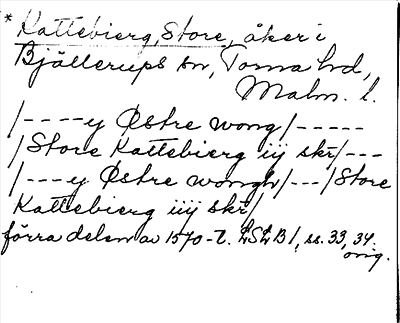 * Kattebierg, Store, åker i
Bjällerups sn, Torna hd,
Malm. l.
/----y Østre wong/-----
/Store Kattebierg iij skr/---
/---y Østre wongh/---/Store
Kattebierg iiij skr/
förra delen av 1570-t. LSLB1, ss. 33, 34.
orig.